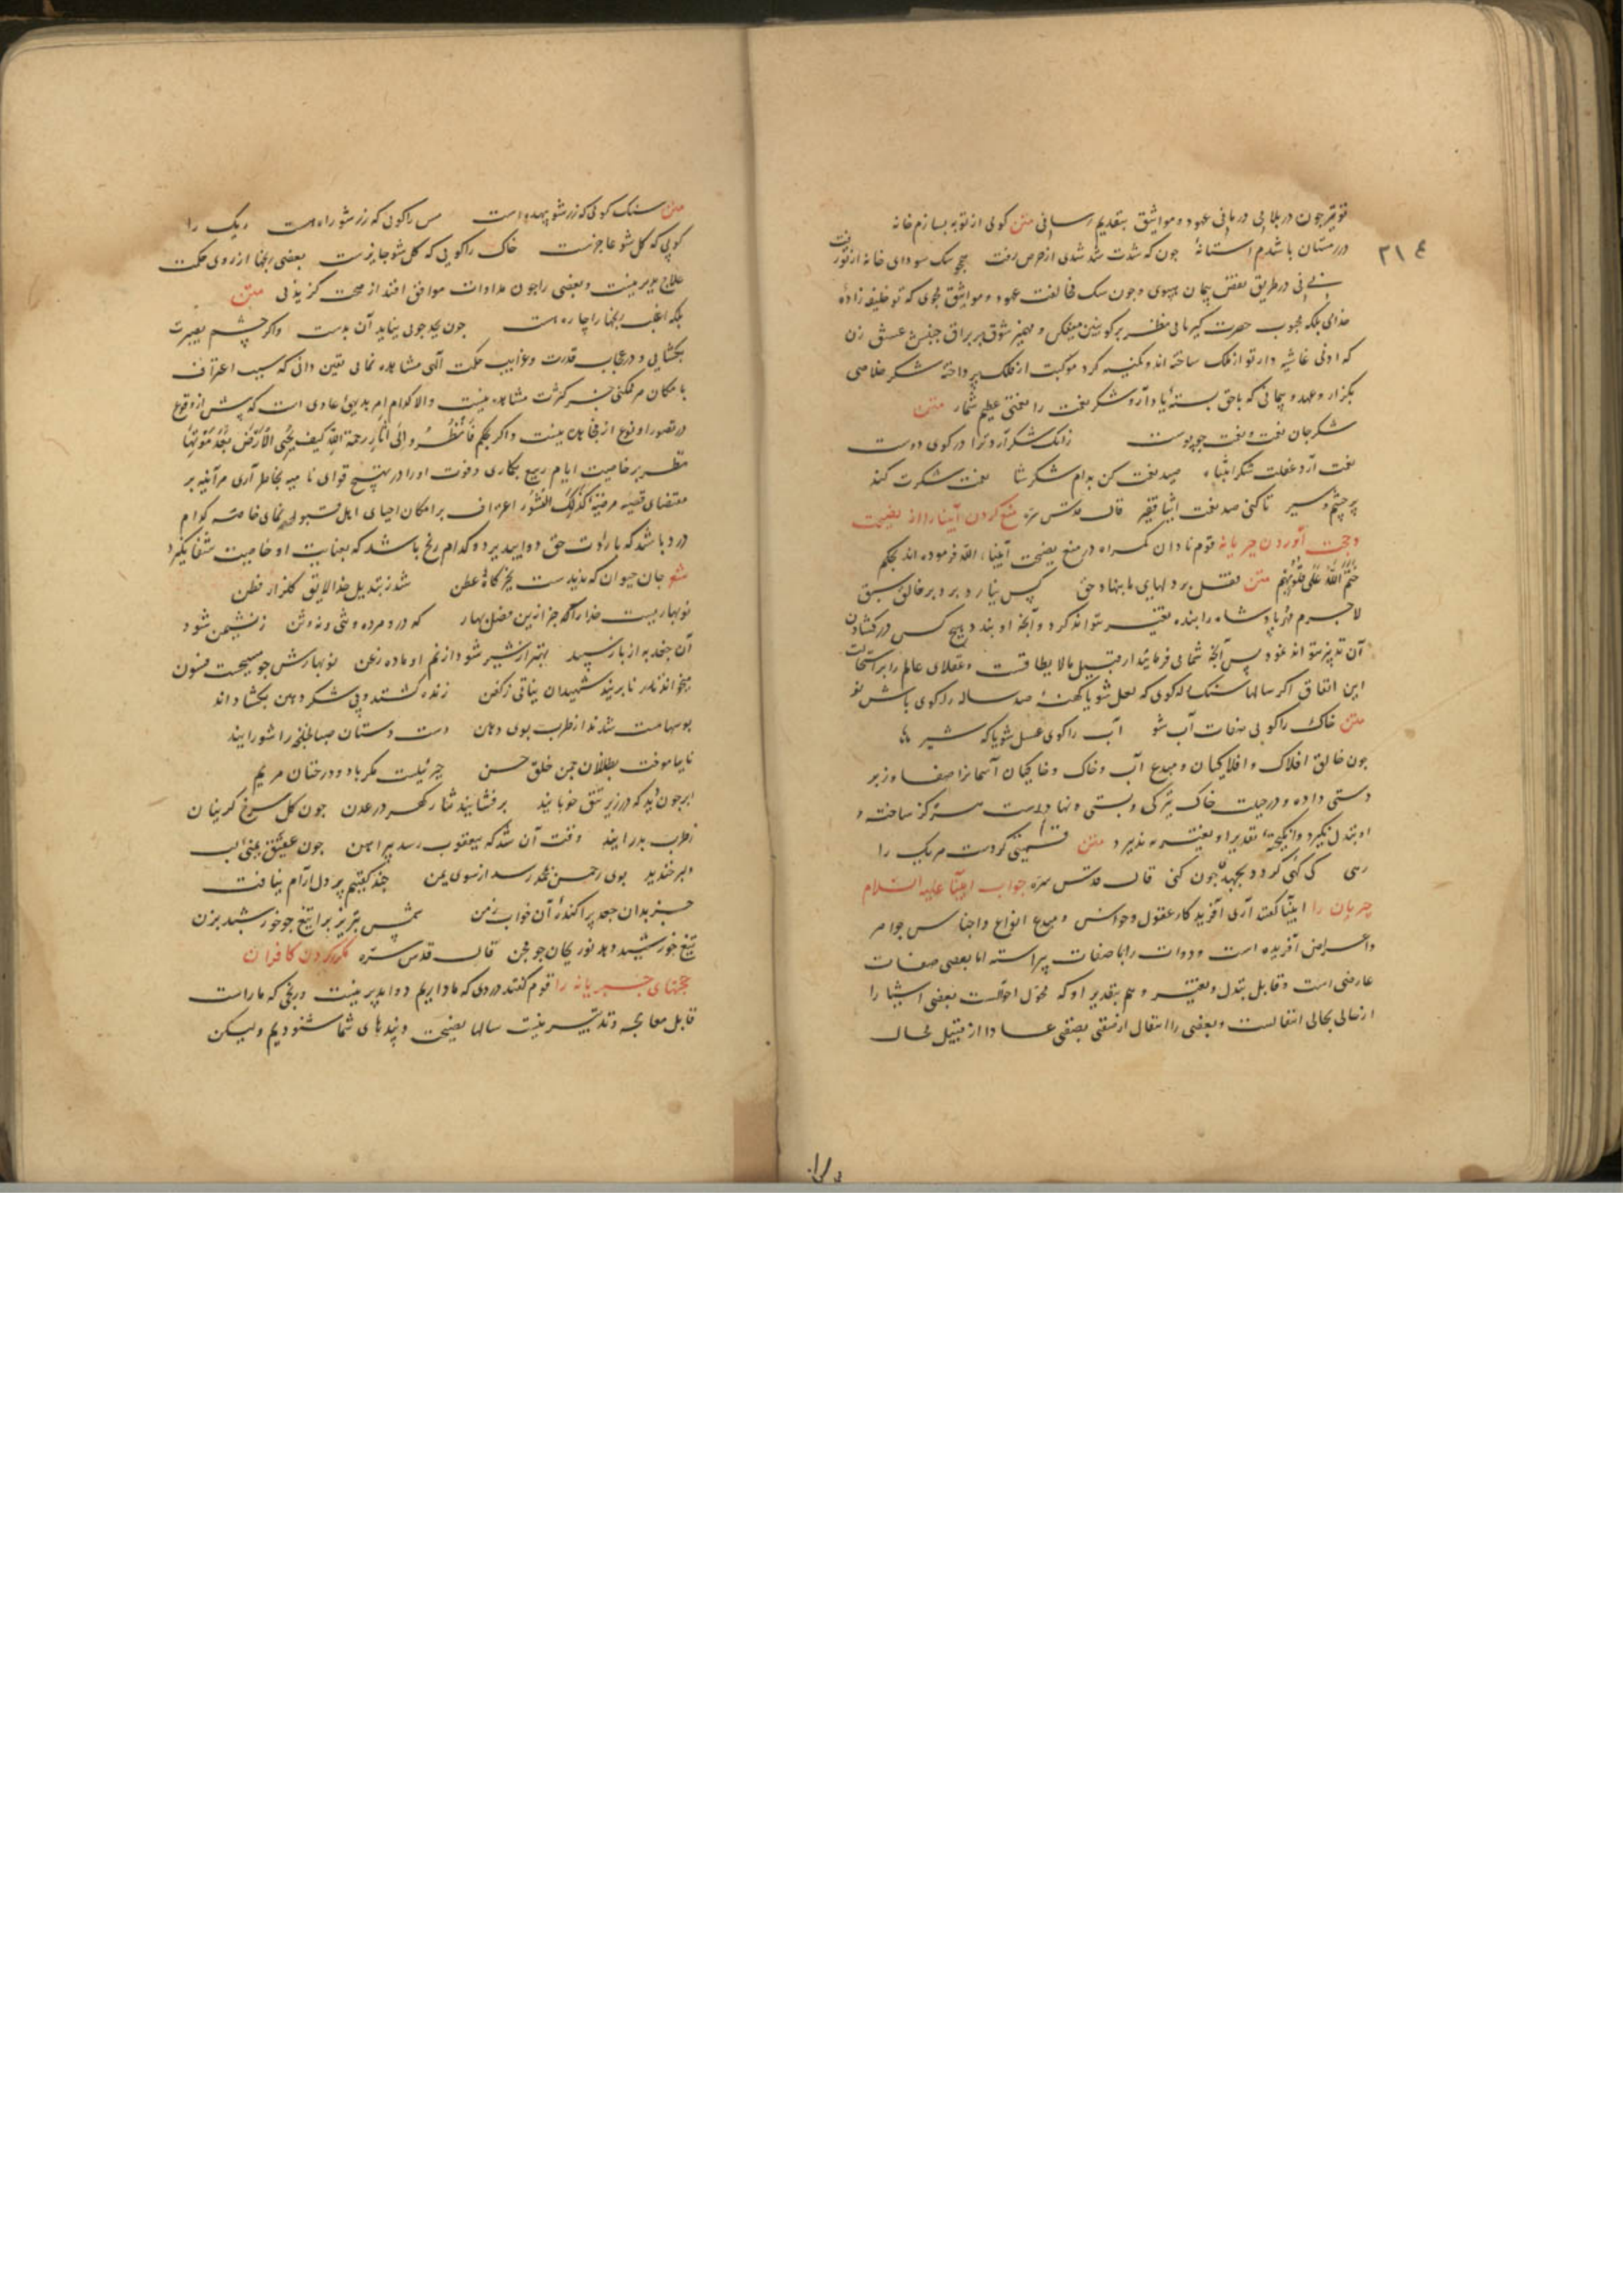 توقیر چون در بلایی درمانی عهود و مواثیق بتقدیم رسانی متن کوئی از توبه بسازم خانه
۳۱۴
در زمستان باشدم استانهٔ چون که شدت شد شدی از حرص زفت همچو سک سودای خانه از تو رفت
در طریق نقض پیمان مپوی و چون سک مخالفت عهود و مواثیق مجوی که تو خلیفه زادهٔ
خدای بلکه محبوب حضرت کبریایی نظر بر کونین میفکن و مهمیز شوق بر براق جنبش عشق زن
که ادنی غاشیه دار تو از ملک ساخته اند و کمینه کرد موکبت از فلک پرداخته شکر خلاصی
بگزار و عهد و پیمانی که باحق بستهٔ یاد آر و شکر نعمت را نعمتی عظیم شمار متن
شکر جان نعمت و نعمت چو پوست زانک شکر آرد ترا در کوی دوست
نعمت آرد غفلت شکر انتباه صید نعمت کن بدام شکر شا نعمت شکرت کند
پر چشم و سیر تا کنی صد نعمت ایثار فقیر قال قدس سره منع کردن انبیا را از نصیحت
و حجت آوردن جبریانه قوم نادان کمراه در منع نصیحت انبیاء الله فرموده اند بحکم
ختم الله علی قلوبهم متن قفل بر دلهای ما بنهاد حق کس نیارد برد بر خالق سبق
لاجرم مهر پادشاه را بنده تغییر نتواند کرد و آنچه او بندد هیچ کس در کشادن
آن تدبیر نتواند نمود پس آنچه شما می فرمائید از قبیل مالا یطاقست و عقلای عالم را بر استحالت
این اتفاق اکر سالها سنک را کوی که لعل شو یا کهنهٔ صد ساله را کوی باش نو
متن خاک را کویی صفات آب شو آب را کوی عسل شو یا که شیر
چون خالق افلاک و افلاکیان و مبدع آب و خاک و خاکیان آسمانرا صفا و زبر
دستی داده و در جبلت خاک تیرکی و پستی و نهاده است مرکز ساخته و
او تبدل نکیرد و از تقدیر او تغییر نپذیرد متن قسمتی کردست هر یک را
رهی کی کهی کردد بجهدی چون کهی قال قدس سره جواب انبیا علیه السلام
جبریان را انبیا کفتند آری آفریدکار عقول و حواس و مبدع انواع و اجناس جواهر
و اعراض آفریده است و ذوات را باصفات پیراسته اما بعضی صفات
عارضی است و قابل تبدل و تغییر و هم بتقدیر او که محول احوالست بعضی اشیا را
از حالی بحالی انتقالست و بعضی را انتقال از صفتی بصفتی عادا از قبیل محال
متن سنک کوئی که زر شو بیهده است مس را کویی که زر شو راه هست ریک را
کویی که کل شو عاجزست خاک را کویی که کل شو جایزست بعضی رنجها از روی حکمت
علاج پذیر نیست و بعضی را چون مداوات موافق افتد از صحت کزیدنی متن
بلکه اغلب رنجها را چاره هست چون بجد جویی بیاید آن بدست و اکر چشم بصیرت
بکشایی و در عجایب قدرت و غرایب حکمت آلهی مشاهده نمایی یقین دانی که سبب اعتراف
بامکان هر ممکنی جز کثرت مشاهده نیست والا کدام امر بدیهی عادی است که پیش از وقوع
در تصور او نوع از مجاهده نیست و اکر بحکم فانظر الی آثار رحمة الله کیف یحیی الارض بعد موتها
نظر بر خاصیت ایام ربیع بکاری و قوت او را در تهییج قوای نامیه بخاطر آری هر آینه بر
مقتضای قضیه مرضیه کذلک النشور اعتراف بر امکان احیای اهل قبور نمای خاصه کدام
درد باشد که باردت حق دوا نپذیرد و کدام رنج باشد که بعنایت او خاصیت شفا نکیرد
شعر جان حیوان که ندیدست بجز کاه و عطن شد ز تبدیل خدا لایق کلزار فطن
نوبهاریست خدا را که جز این فصل بهار که درو مرده و نه وثن ز نشیمن شود
آن جغد به از باز سپید بهتر از شیر شود از نم او ماده زغن نوبهارش چو مسیحست فسون
میخواند تا برآیند شهیدان نباتی ز کفن زنده کشتند و پی شکر دهن بکشادند
بوسها مست شدند از طرب بوی دهن دست دستان صبا لخلخه را شورانید
تا بیاموخت بطفلان چمن خلق حسن جبرئیلست مکر باد و درختان مریم
ابر چون دید که در زیر تتق خوبانند بر فشانید نثار کهر در عدن چون کل سرخ کریبان
ز طرب بدرانید وقت آن شد که بیعقوب رسد پیراهن چون عقیق یمنی لب
دلبر خندید بوی رحمن بمحمد رسد از سوی یمن چند کفتیم پر دل آرام نیافت
جز بدان جعد پراکندهٔ آن خواب زمن شمس تبریز برآ تیغ چو خورشید بزن
تیغ خورشید دهد نور بجان چو مجن قال قدس سره مکرر کردن کافران
حجتهای جبریانه را قوم کفتند دردی که ما داریم دوا پذیر نیست و رنجی که ما راست
قابل معالجه و تدبیر نیست سالها نصیحت و پندهای شما شنودیم ولیکن